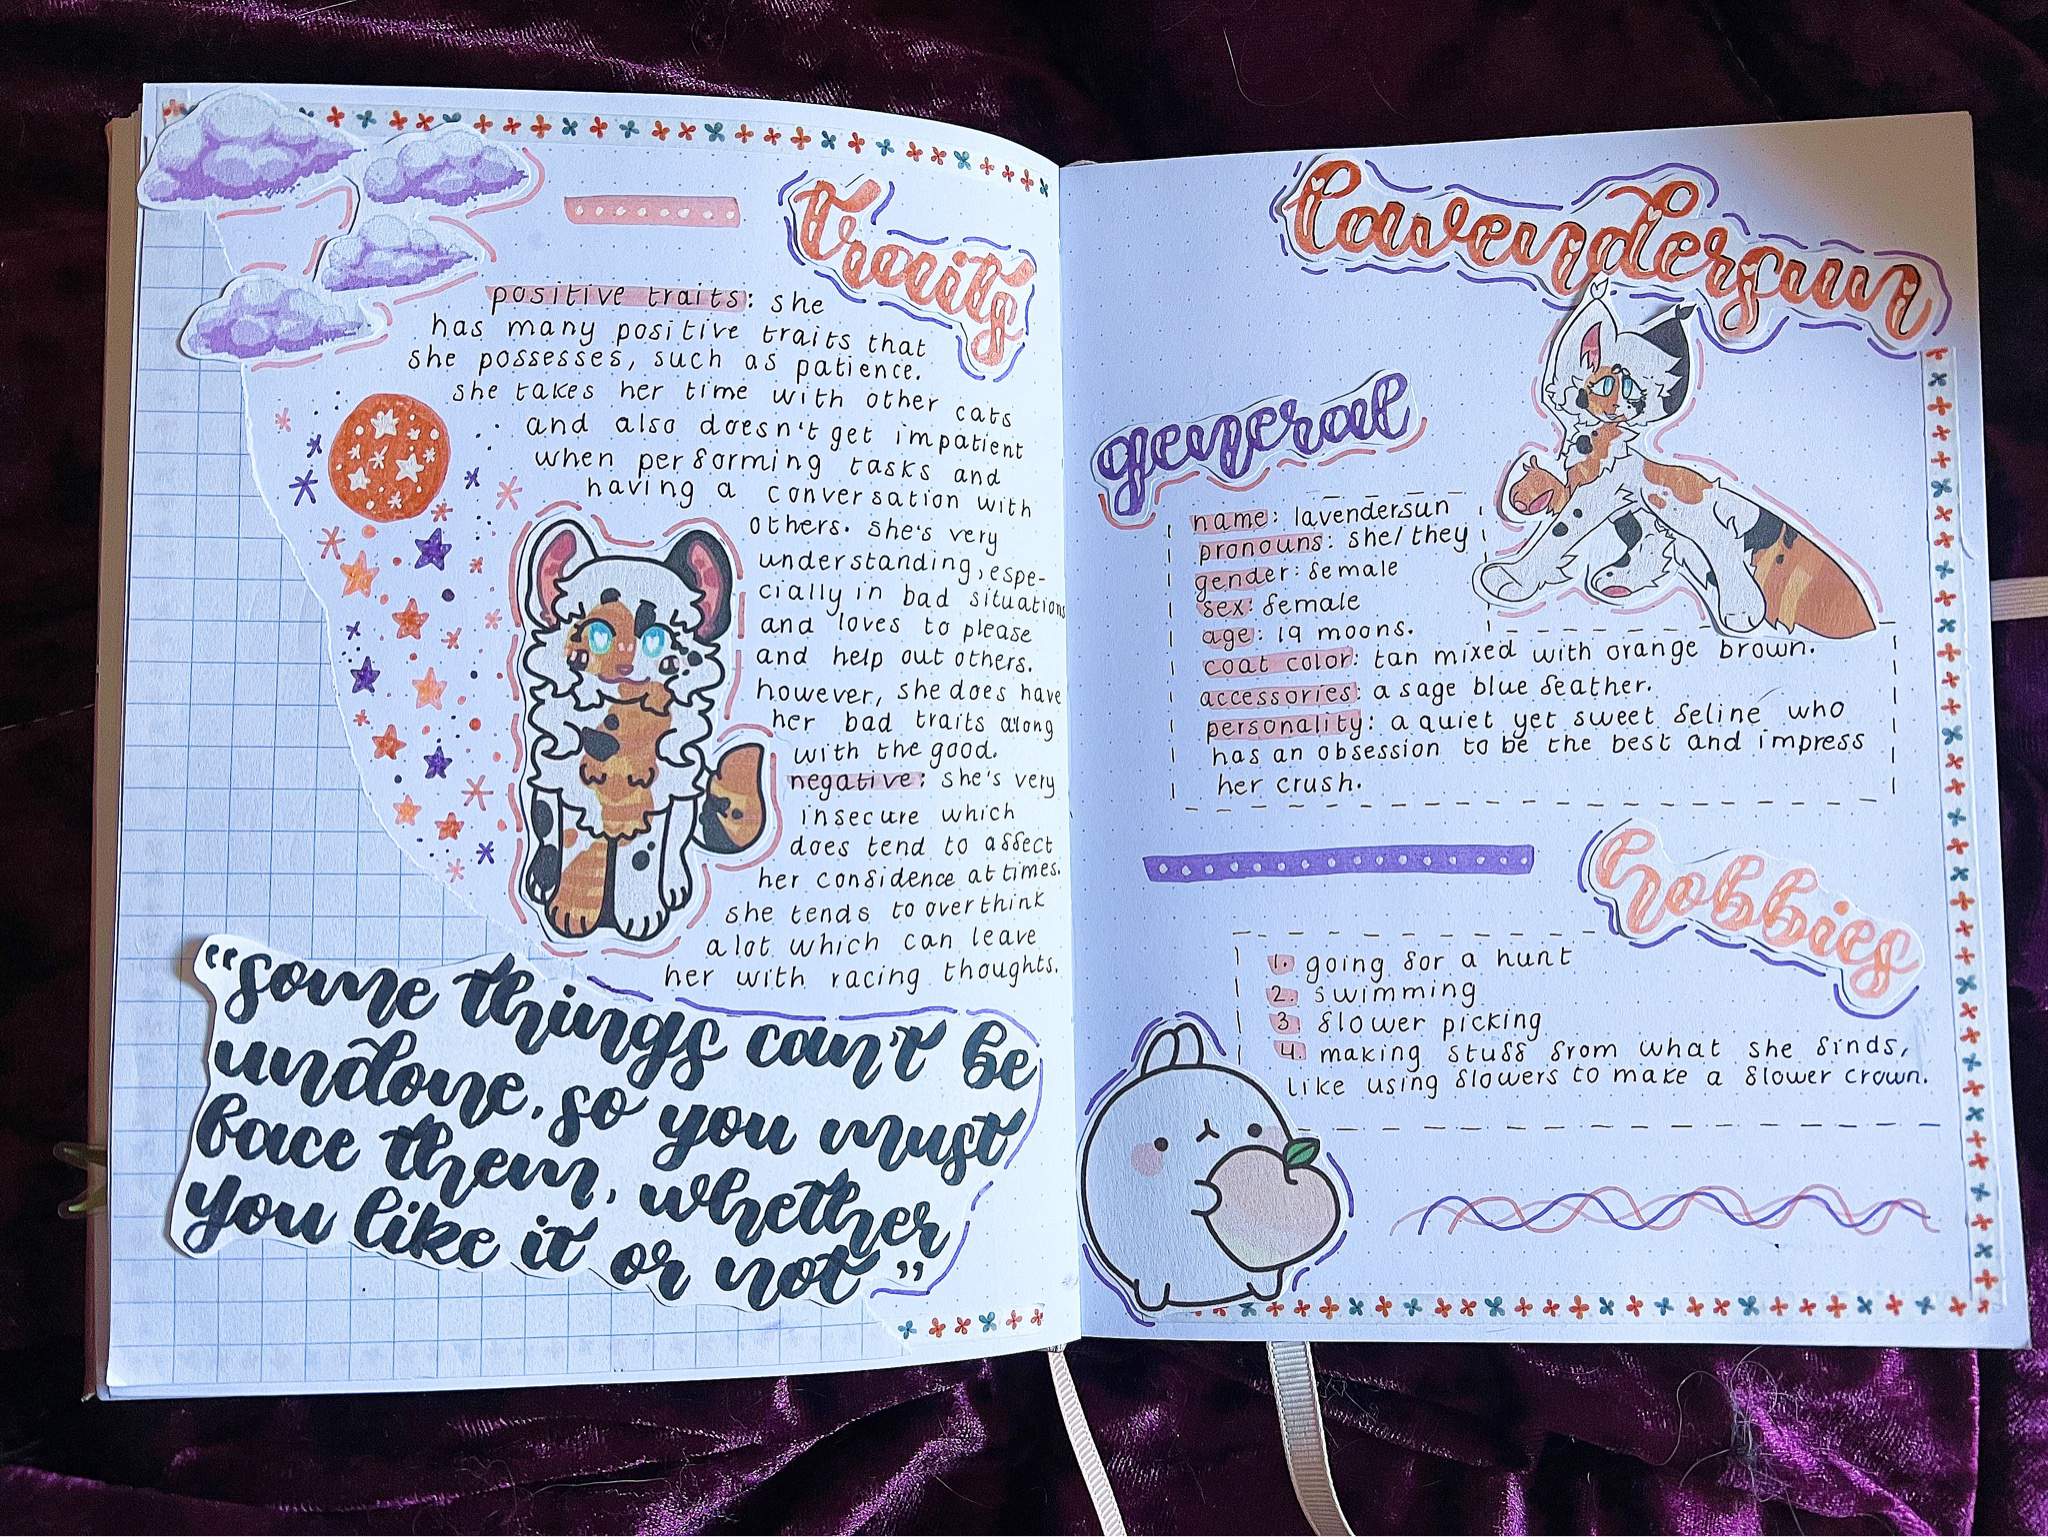 traits
positive traits: she
has many positive traits that
she possesses, such as patience.
she takes her time with other cats
and also doesn't get impatient
when performing tasks and
having a conversation with
others. she's very
understanding, espe-
cially in bad situations
and loves to please
and help out others.
however, she does have
her bad traits along
with the good.
negative: she's very
insecure which
does tend to affect
her confidence at times.
she tends to overthink
a lot which can leave
her with racing thoughts.
"some things can't be
undone, so you must
face them, whether
you like it or not"
lavendersun
general
name: lavendersun
pronouns: she/they
gender: female
sex: female
age: 19 moons.
coat color: tan mixed with orange brown.
accessories: a sage blue feather.
personality: a quiet yet sweet feline who
has an obsession to be the best and impress
her crush.
hobbies
1. going for a hunt
2. swimming
3. flower picking
4. making stuff from what she finds,
like using flowers to make a flower crown.